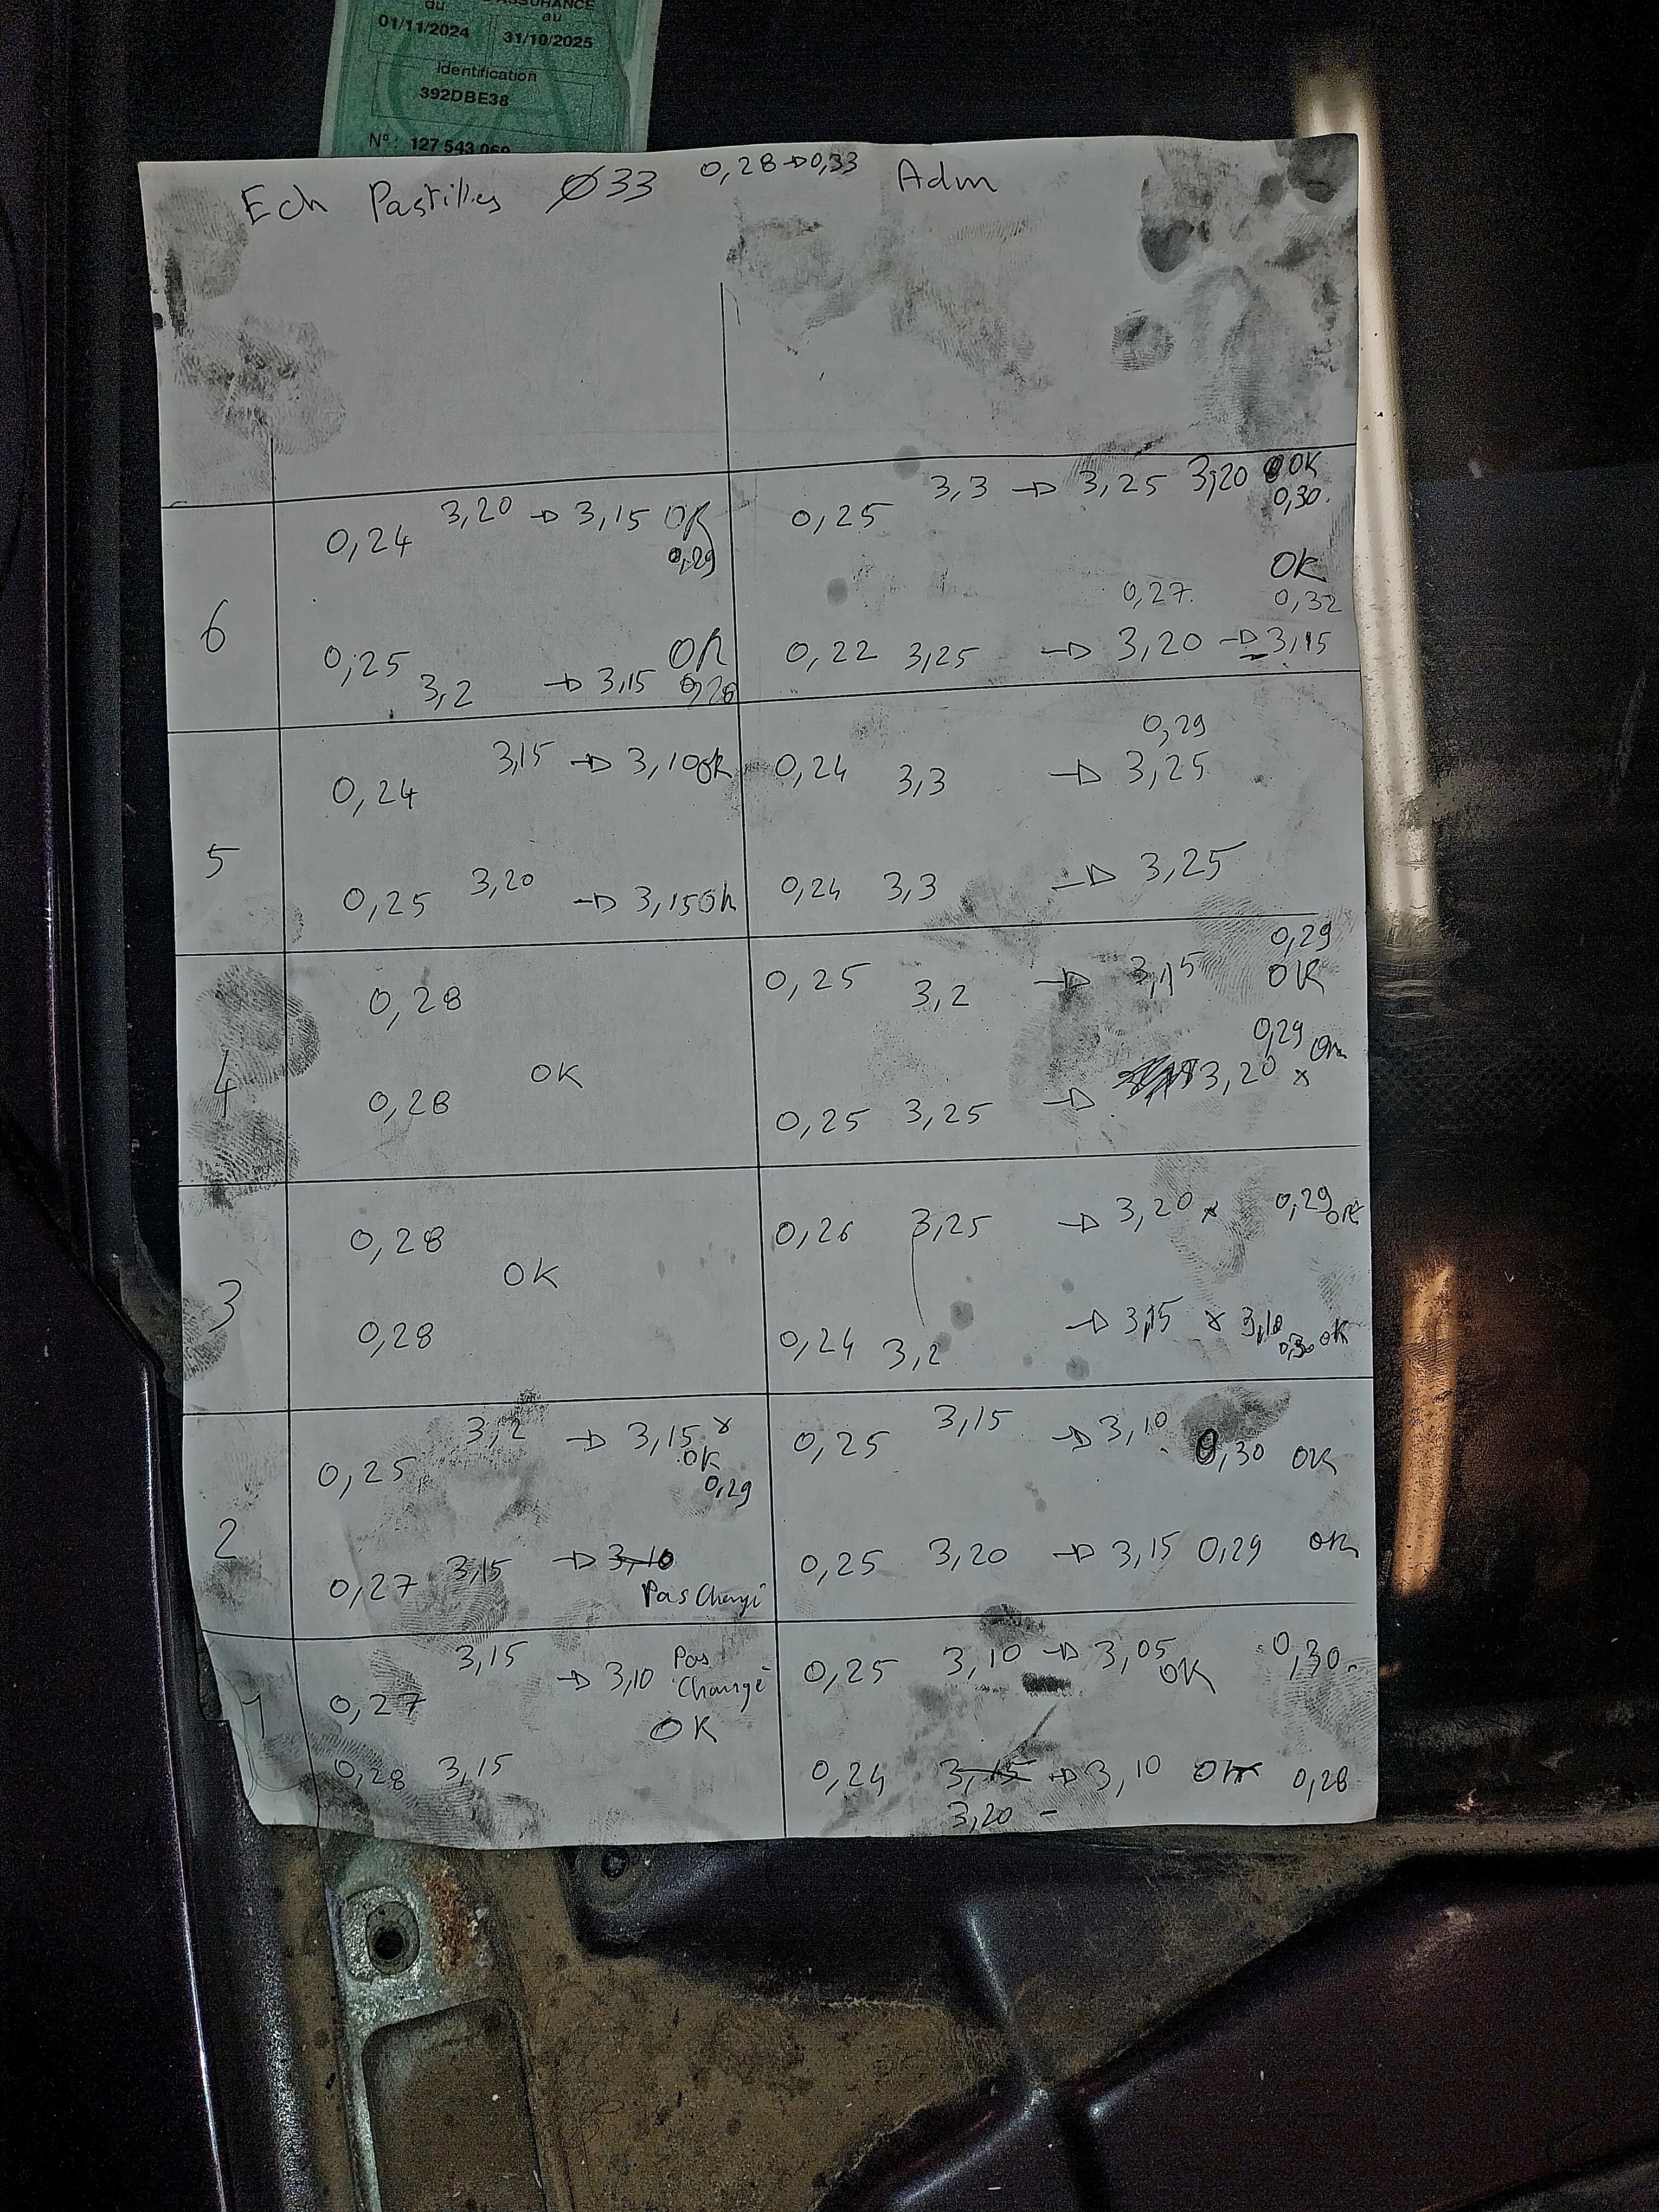 du
ASSURANCE
au
01/11/2024
31/10/2025
Identification
392DBE38
N° : 127 543 060
Ech Pastilles Ø33 0,28→0,33 Adm
6
0,24 3,20 → 3,15 OK
0,29
0,25 3,2 → 3,15 OK
0,28
0,25 3,3 → 3,25 3,20 OK
0,30
OK
0,27 0,32
0,22 3,25 → 3,20 → 3,15
5
0,24 3,15 → 3,10 OK
0,25 3,20 → 3,15 OK
0,29
0,24 3,3 → 3,25
0,24 3,3 → 3,25
4
0,28
OK
0,28
0,29
0,25 3,2 → 3,15 OK
0,29 OK
0,25 3,25 → 3,20 x
3
0,28
OK
0,28
0,26 3,25 → 3,20 x 0,29 OK
0,24 3,2 → 3,15 x 3,10
0,30 OK
2
0,25 3,2 → 3,15 x
OK
0,29
0,27 3,15 → 3,10
Pas Changé
0,25 3,15 → 3,10 0,30 OK
0,25 3,20 → 3,15 0,29 OK
1
0,27 3,15 → 3,10 Pas
Changé
OK
0,28 3,15
0,25 3,10 → 3,05 0,30
OK
0,24 3,15 → 3,10 OK 0,28
3,20 -